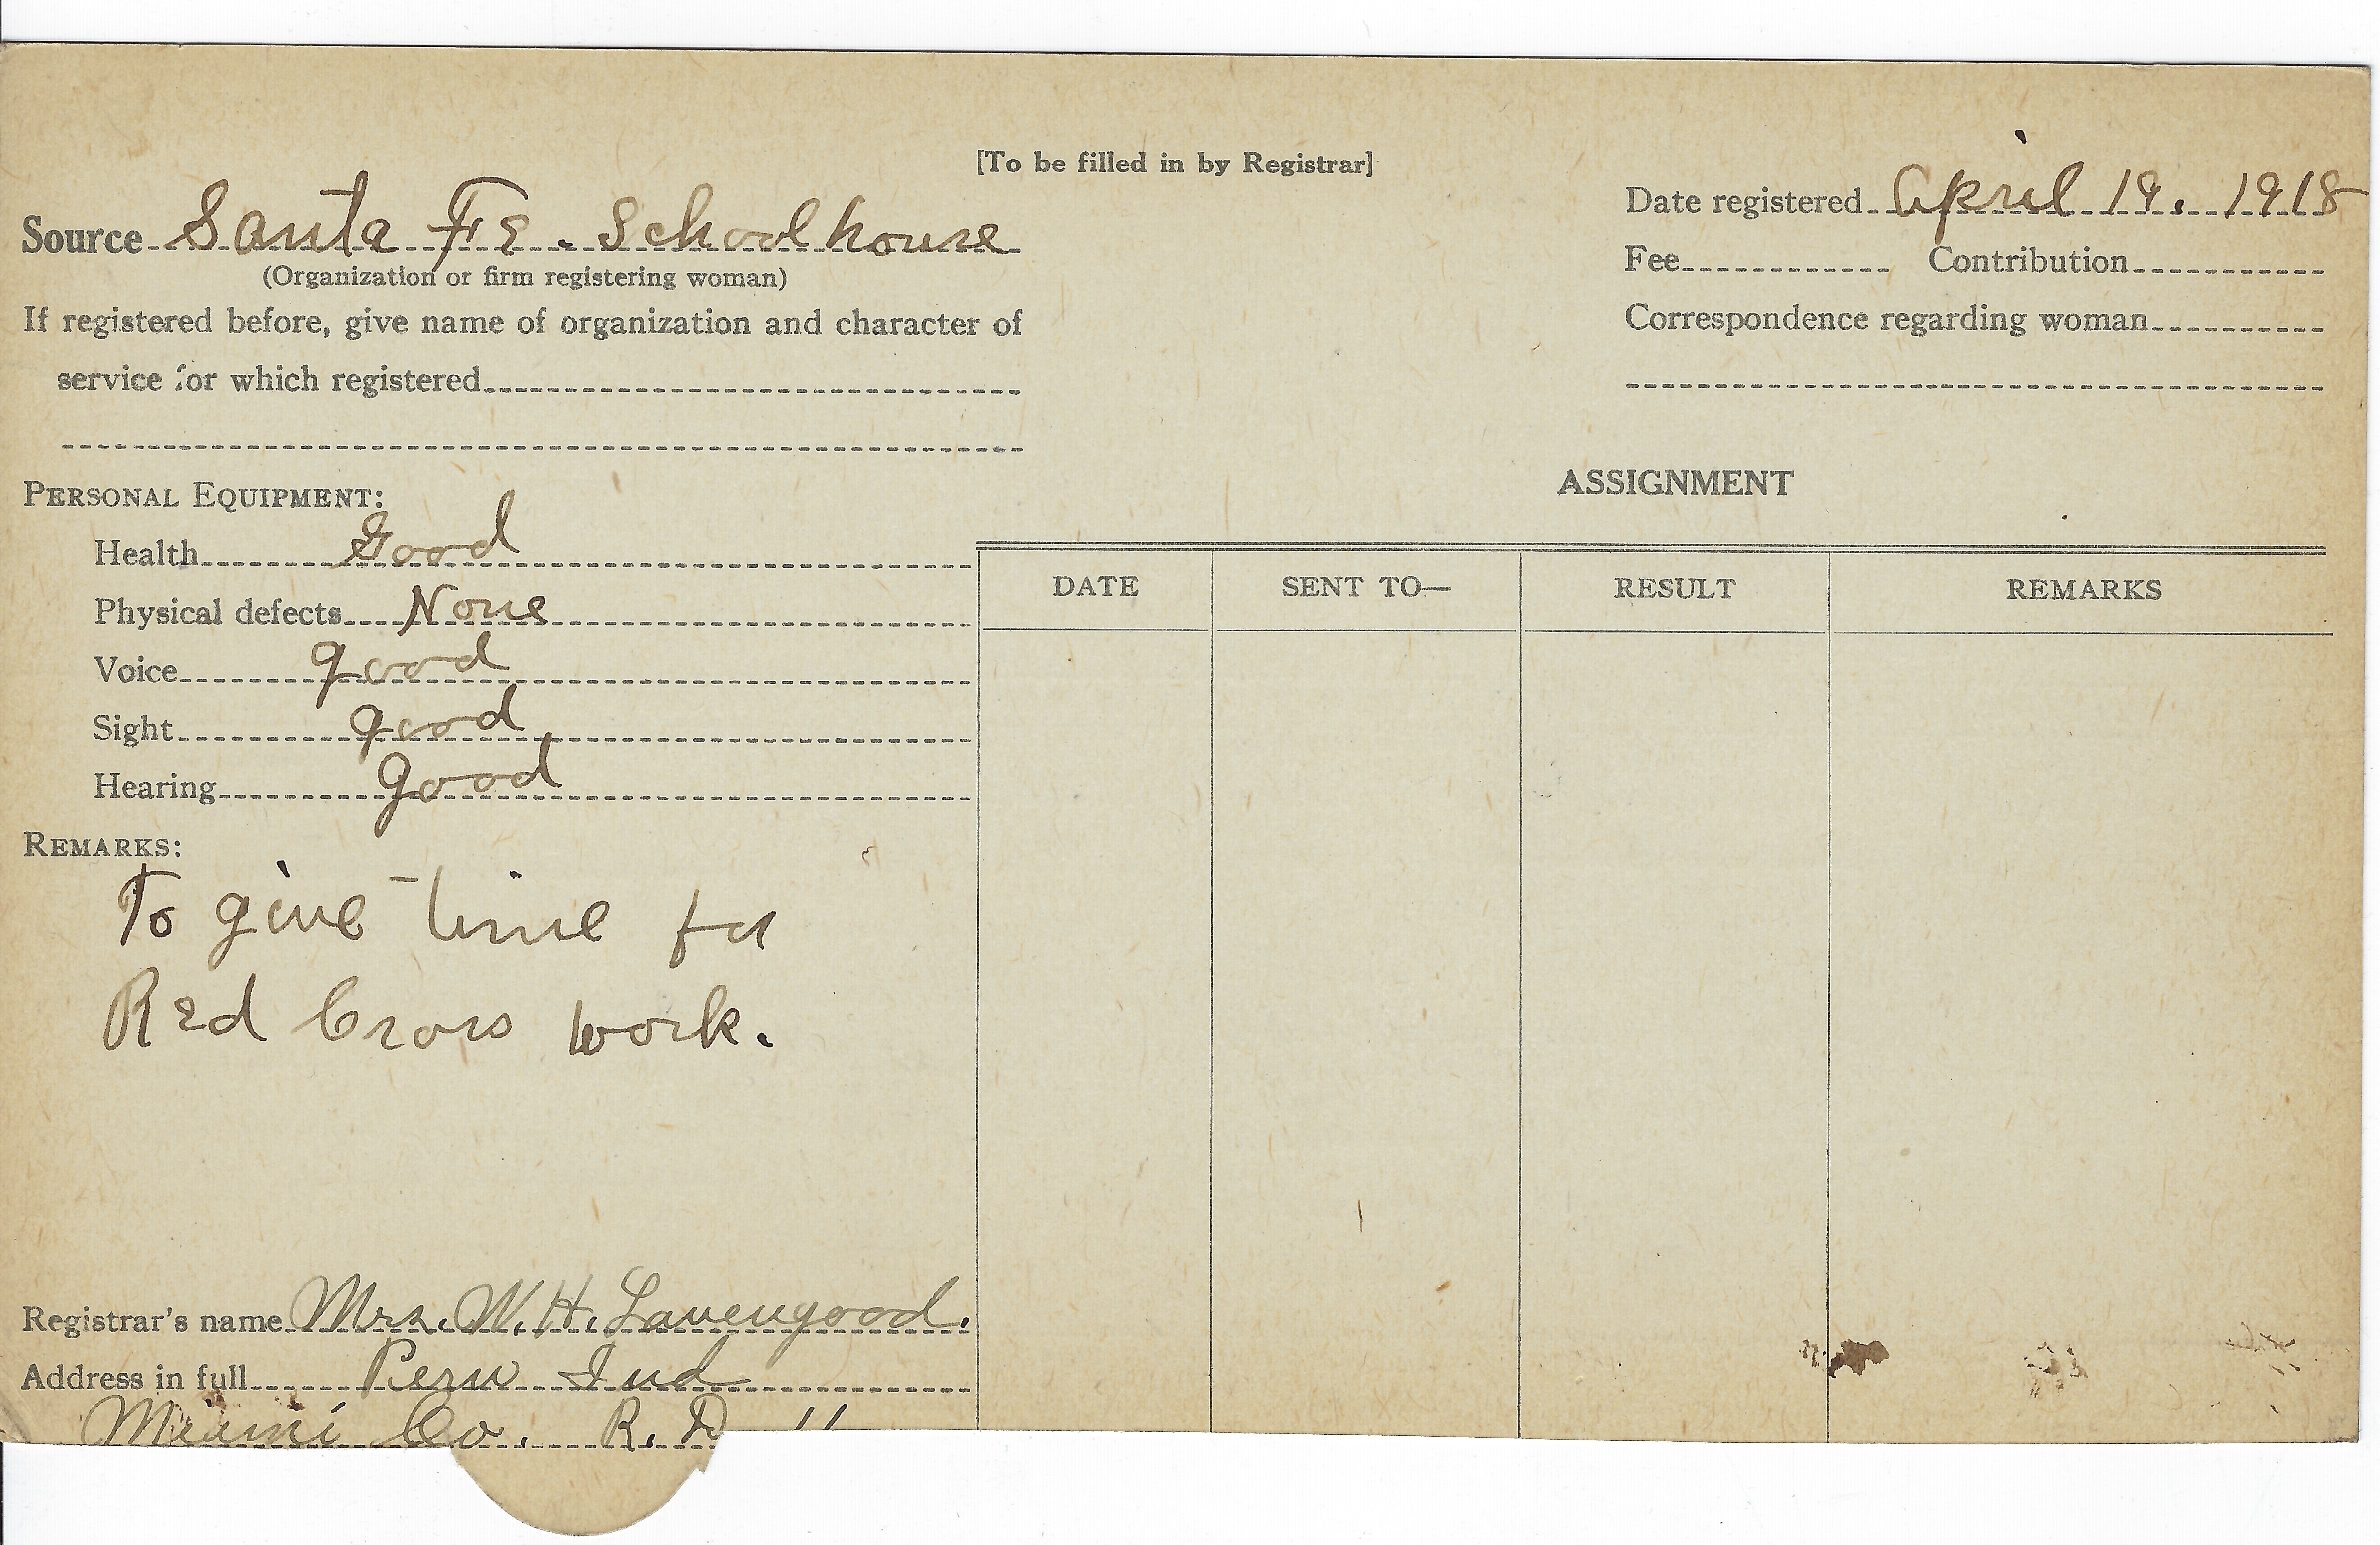 [To be filled in by Registrar]
Source Santa Fe. Schoolhouse
(Organization or firm registering woman)
If registered before, give name of organization and character of
service for which registered
Date registered April 19. 1918
Fee Contribution
Correspondence regarding woman
PERSONAL EQUIPMENT:
Health Good
Physical defects None
Voice good
Sight good
Hearing good
REMARKS:
To give time for
Red Cross work.
Registrar's name Mrs. W. H. Lavengood.
Address in full Peru Ind
Miami Co. R. D
ASSIGNMENT
DATE SENT TO— RESULT REMARKS